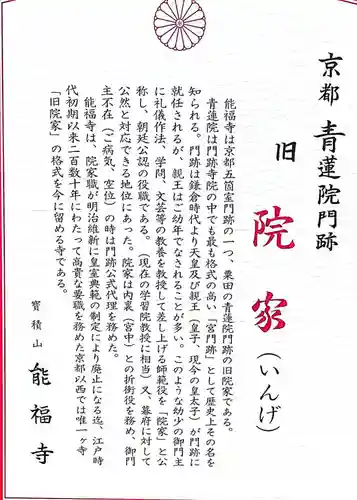 京都 青蓮院門跡
旧 院家（いんげ）
能福寺は京都五箇室門跡の一つ、粟田の青蓮院門跡の旧院家である。
青蓮院は門跡寺院の中でも最も格式の高い「宮門跡」として歴史上その名を
知られる。門跡は鎌倉時代より天皇及び親王（皇子、現今の皇太子）が門跡に
就任されるが、親王はご幼年でなされることが多い。このような幼少の御門主
に礼儀作法、学問、文芸等の教養を教授して差し上げる師範役を「院家」と公
称し、朝廷公認の役職である。（現在の学習院教授に相当）又、幕府に対して
公然と対応できる地位にあった。院家は内裏（宮中）との折衝役を務め、御門
主不在（ご病気、空位）の時は門跡公式代理を務めた。
能福寺は、院家職が明治維新に皇室典範の制定により廃止になる迄、江戸時
代初期以来二百数十年にわたって高貴な要職を務めた京都以西では唯一ヶ寺
「旧院家」の格式を今に留める寺である。
寳積山 能福寺